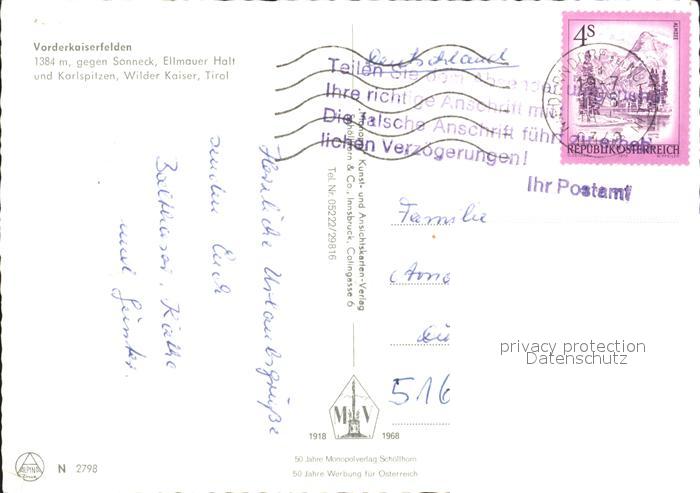 Vorderkaiserfelden
1384 m, gegen Sonneck, Ellmauer Halt
und Karlspitzen, Wilder Kaiser, Tirol
Deutschland
Teilen Sie dem Absender
Ihre richtige Anschrift mit
Die falsche Anschrift führt
lichen Verzögerungen!
Ihr Postamt
4S
ALMSEE
REPUBLIK ÖSTERREICH
Herzliche Urlaubsgrüße
senden Euch
Balthasar, Käthe
und Günter.
Kunst- und Ansichtskarten-Verlag
Schöllhorn & Co., Innsbruck, Colingasse 6
Tel. Nr. 05222/29816
Familie
516
privacy protection
Datenschutz
M V
1918 1968
50 Jahre Monopolverlag Schöllhorn
50 Jahre Werbung für Österreich
ALPINA
N 2798